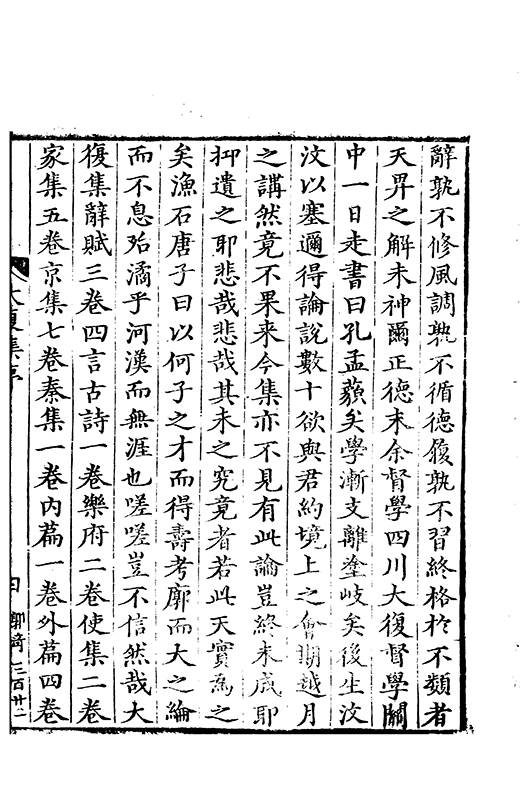 辭孰不修風調孰不循德履孰不習終格於不類者
天昇之解未神爾正德末余督學四川大復督學關
中一日走書曰孔孟藐矣學漸支離塗岐矣後生汶
汶以塞邇得論說數十欲與君約境上之會期越月
之講然竟不果來今集亦不見有此論豈終未成耶
抑遺之耶悲哉悲哉其未之究竟者若此天實為之
矣漁石唐子曰以何子之才而得壽考廓而大之綸
而不息殆潏乎河漢而無涯也嗟嗟豈不信然哉大
復集辭賦三卷四言古詩一卷樂府二卷使集二卷
家集五卷京集七卷秦集一卷內篇一卷外篇四卷
大復集序